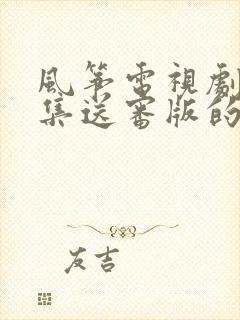 風箏電視劇
集送審版的
友吉